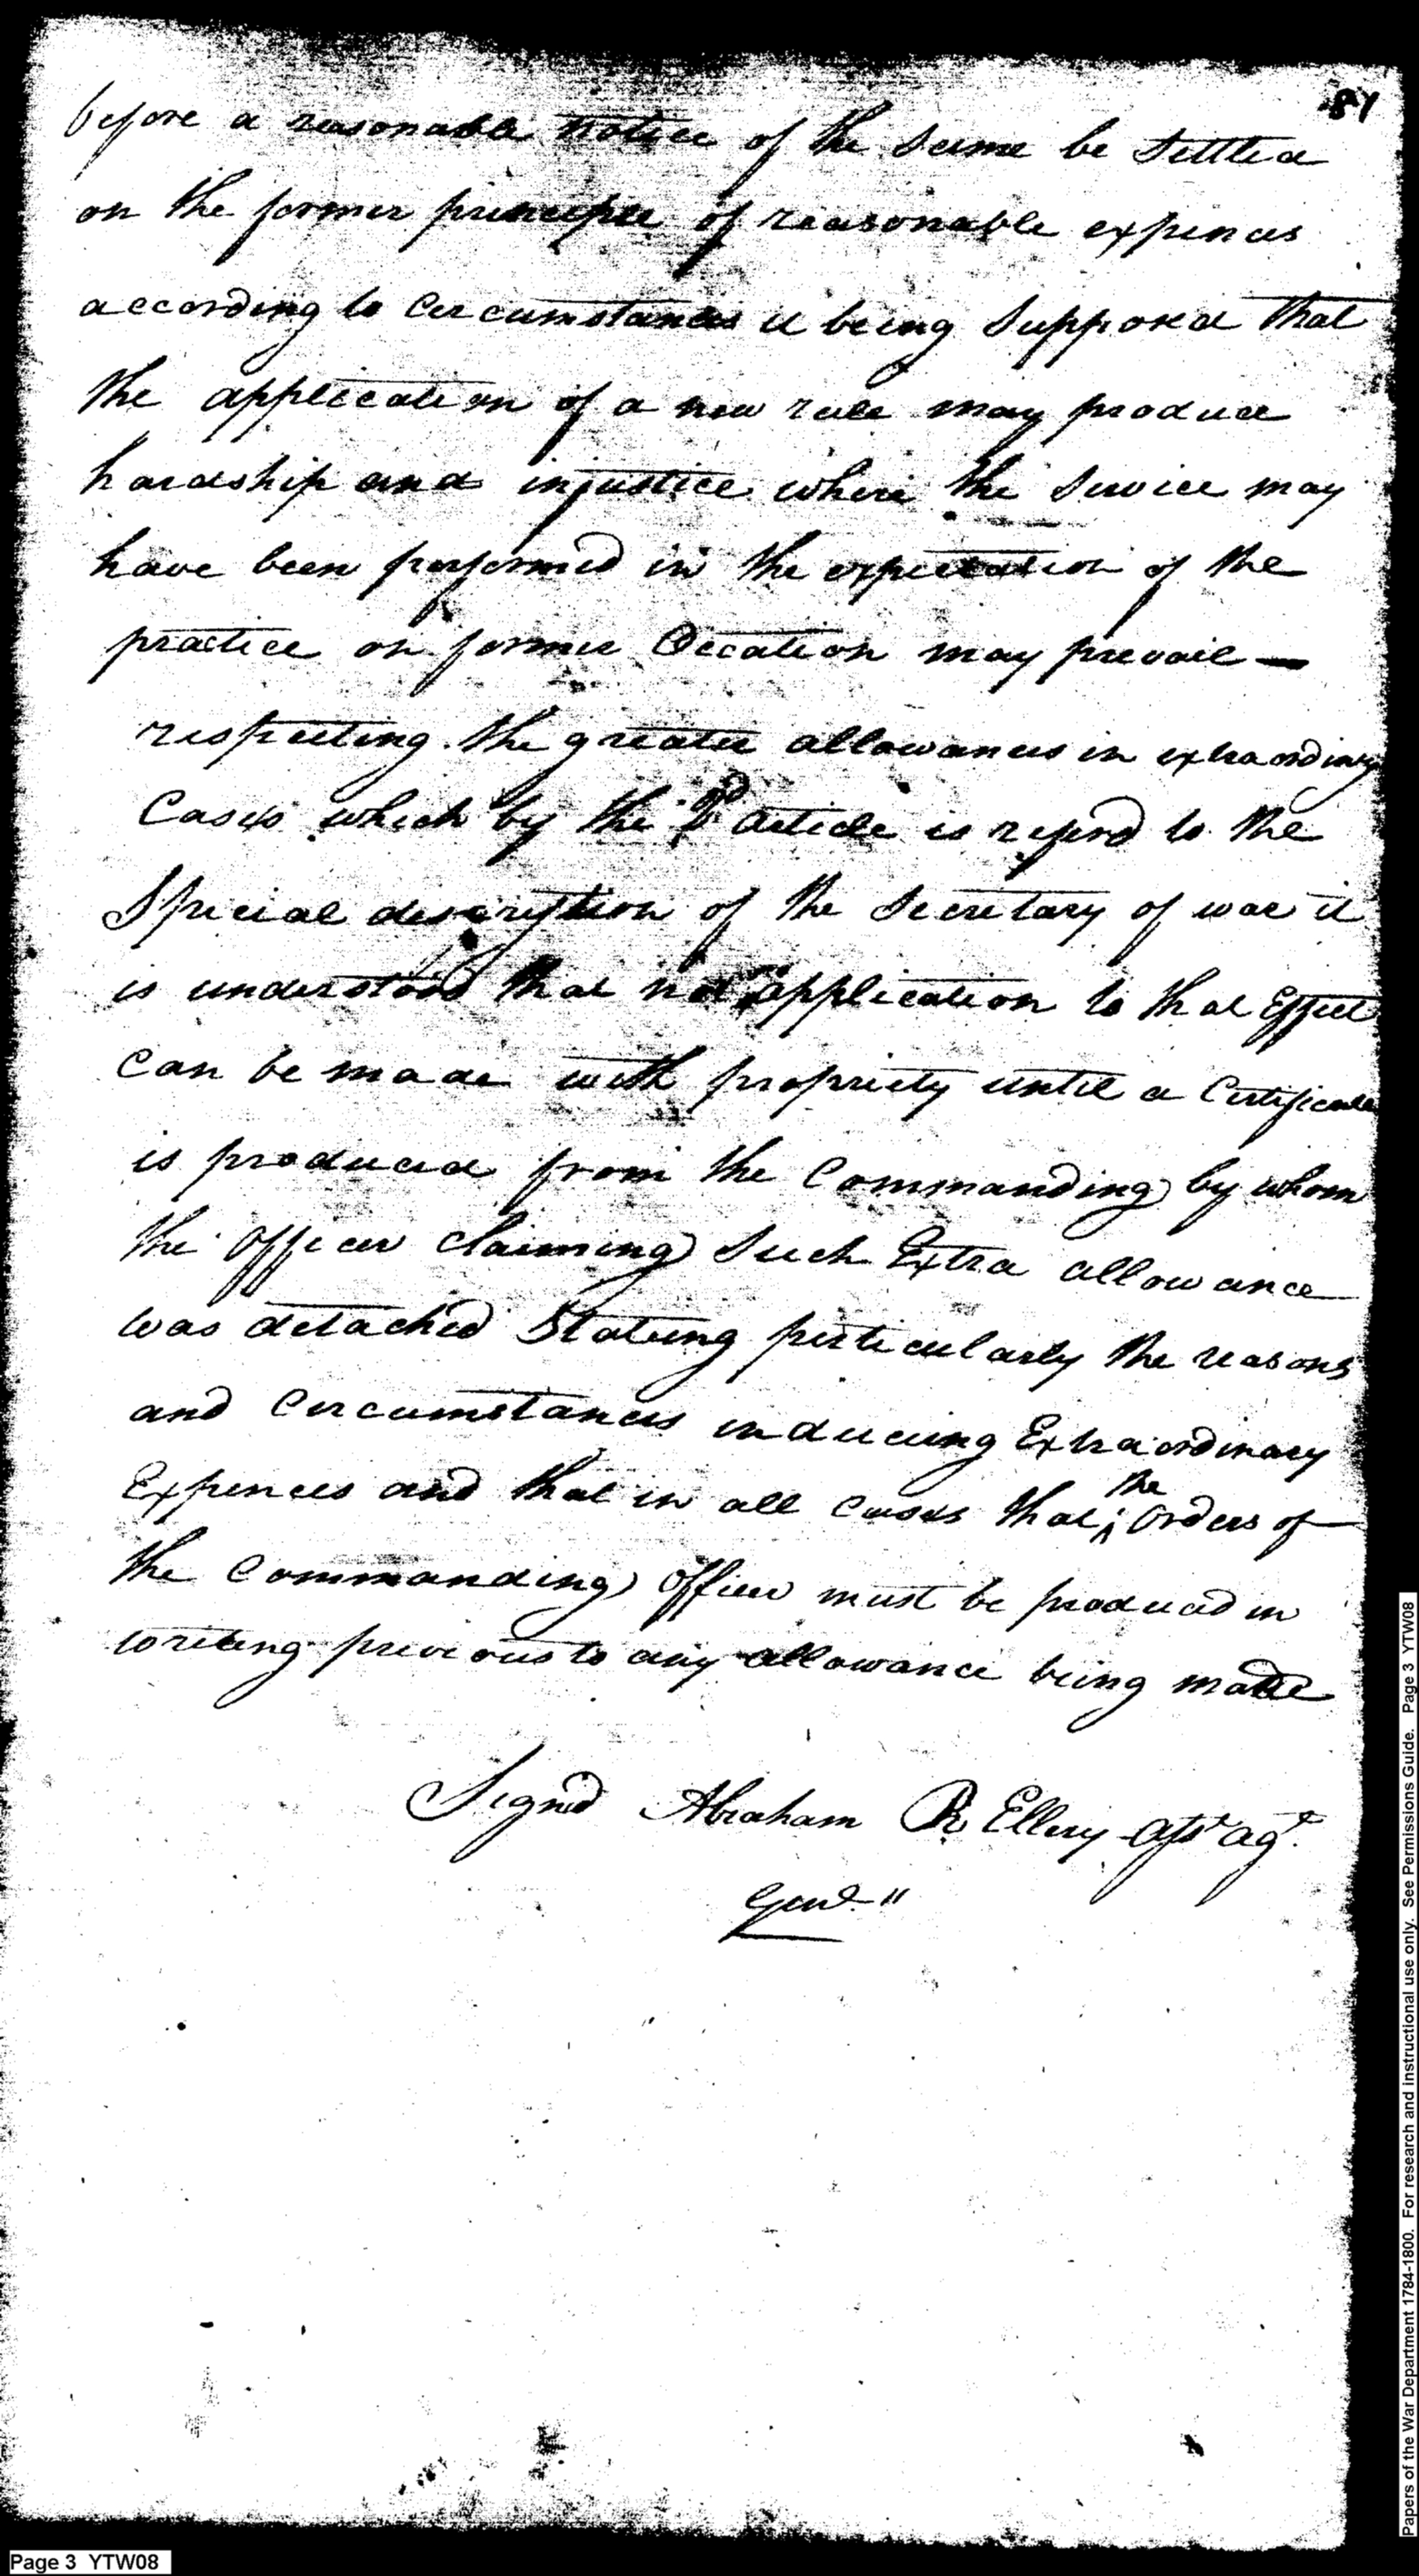 81
before a reasonable notice of the same be settled
on the former principle of reasonable expences
according to Circumstances it being Supposed that
the application of a new rule may produce
hardship and injustice where the Service may
have been performed in the expectation of the
practice on former Occation may prevail —
respecting the greater allowances in extraordinary
Cases which by the 2d article is referd to the
Special description of the Secretary of war it
is understood that no application to that Effect
can be made with propriety until a Certificate
is produced from the Commanding by whom
the Officer claiming Such Extra allowance
was detached Stateing perticularly the reasons
and Circumstances induceing Extraordinary
Expences and that in all cases that the Orders of
the Commanding officer must be produced in
writeing previous to any allowance being made
Signed Abraham R Ellery Asst Agt
Genl "
Page 3 YTW08
Papers of the War Department 1784-1800. For research and instructional use only. See Permissions Guide. Page 3 YTW08